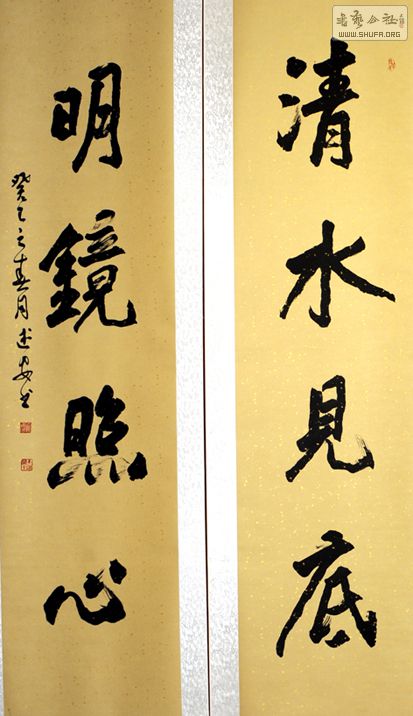 清水見底
明鏡照心
癸巳之春月述安書
書藝公社
WWW.SHUFA.ORG